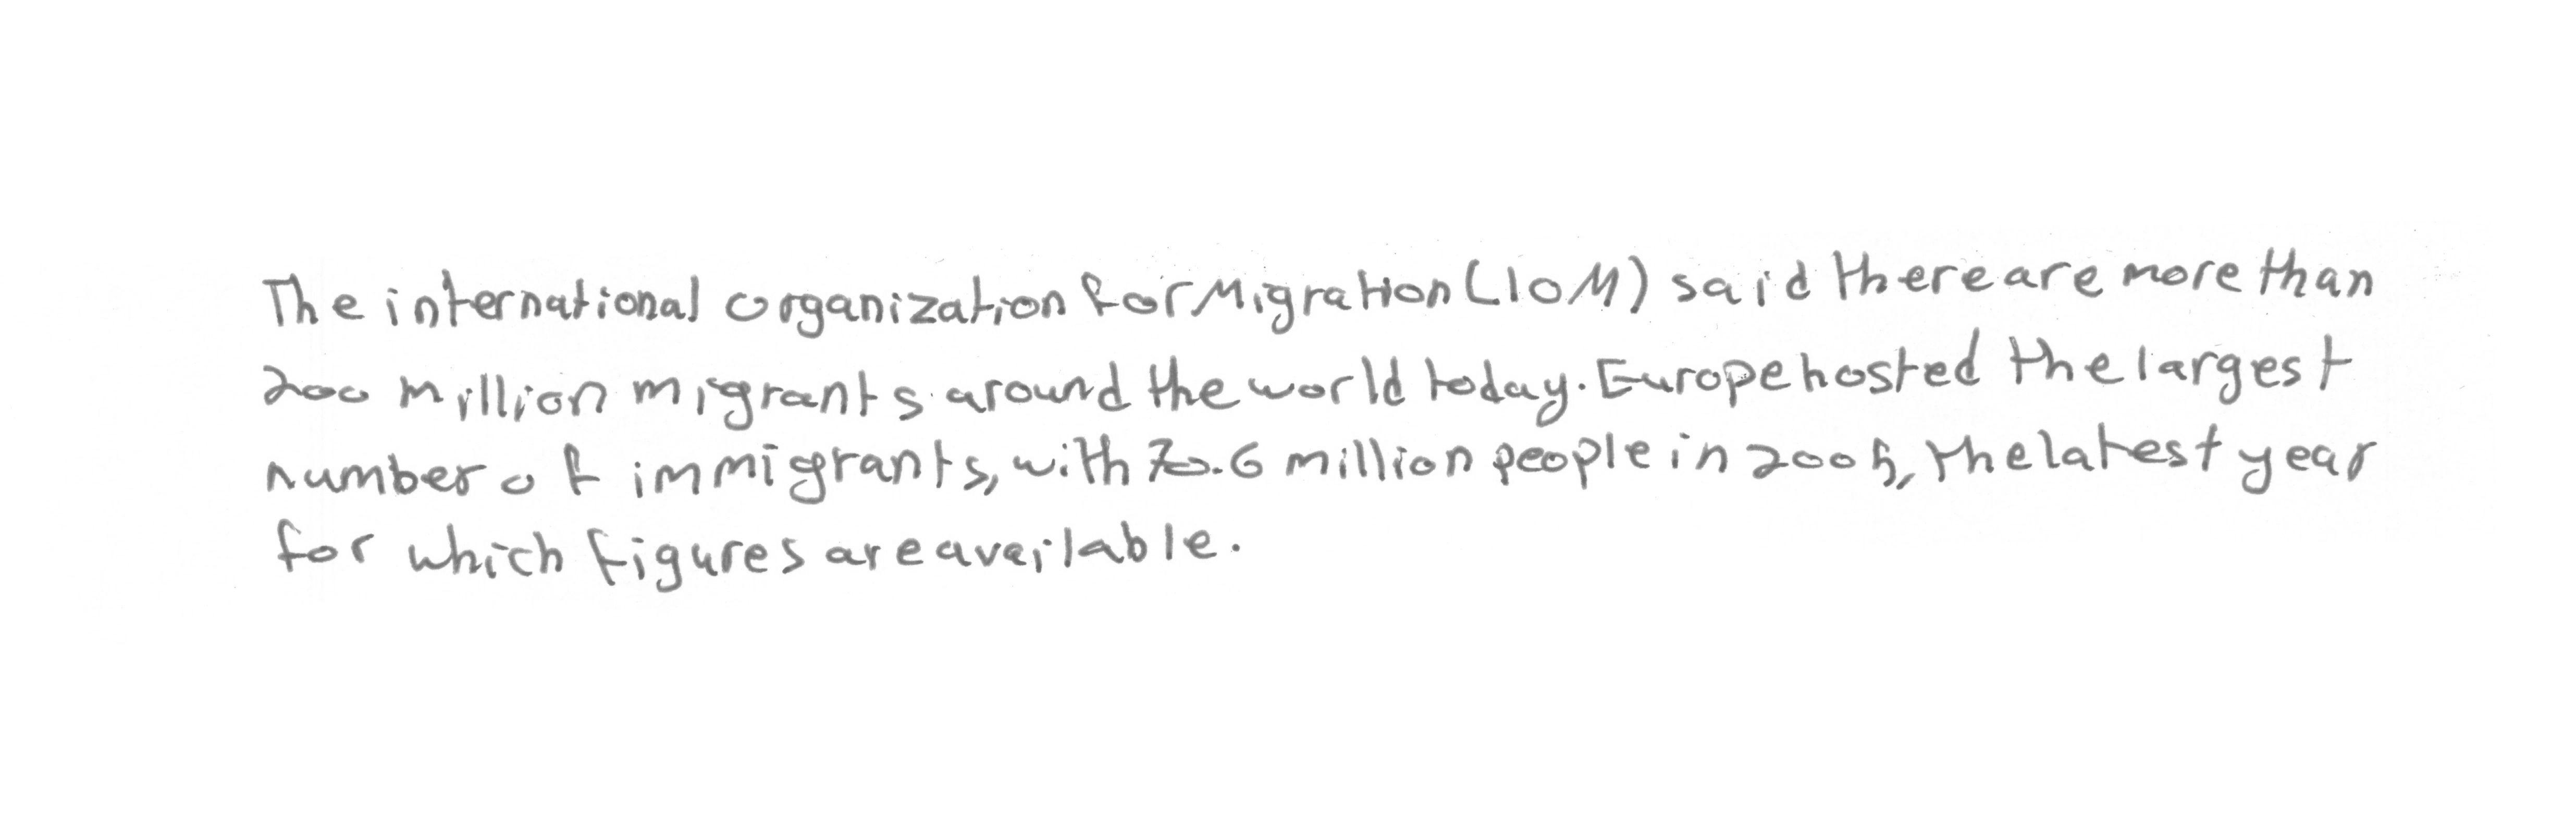 The international organization for Migration (IOM) said there are more than
200 million migrants around the world today. Europe hosted the largest
number of immigrants, with 70.6 million people in 2005, the latest year
for which figures are available.